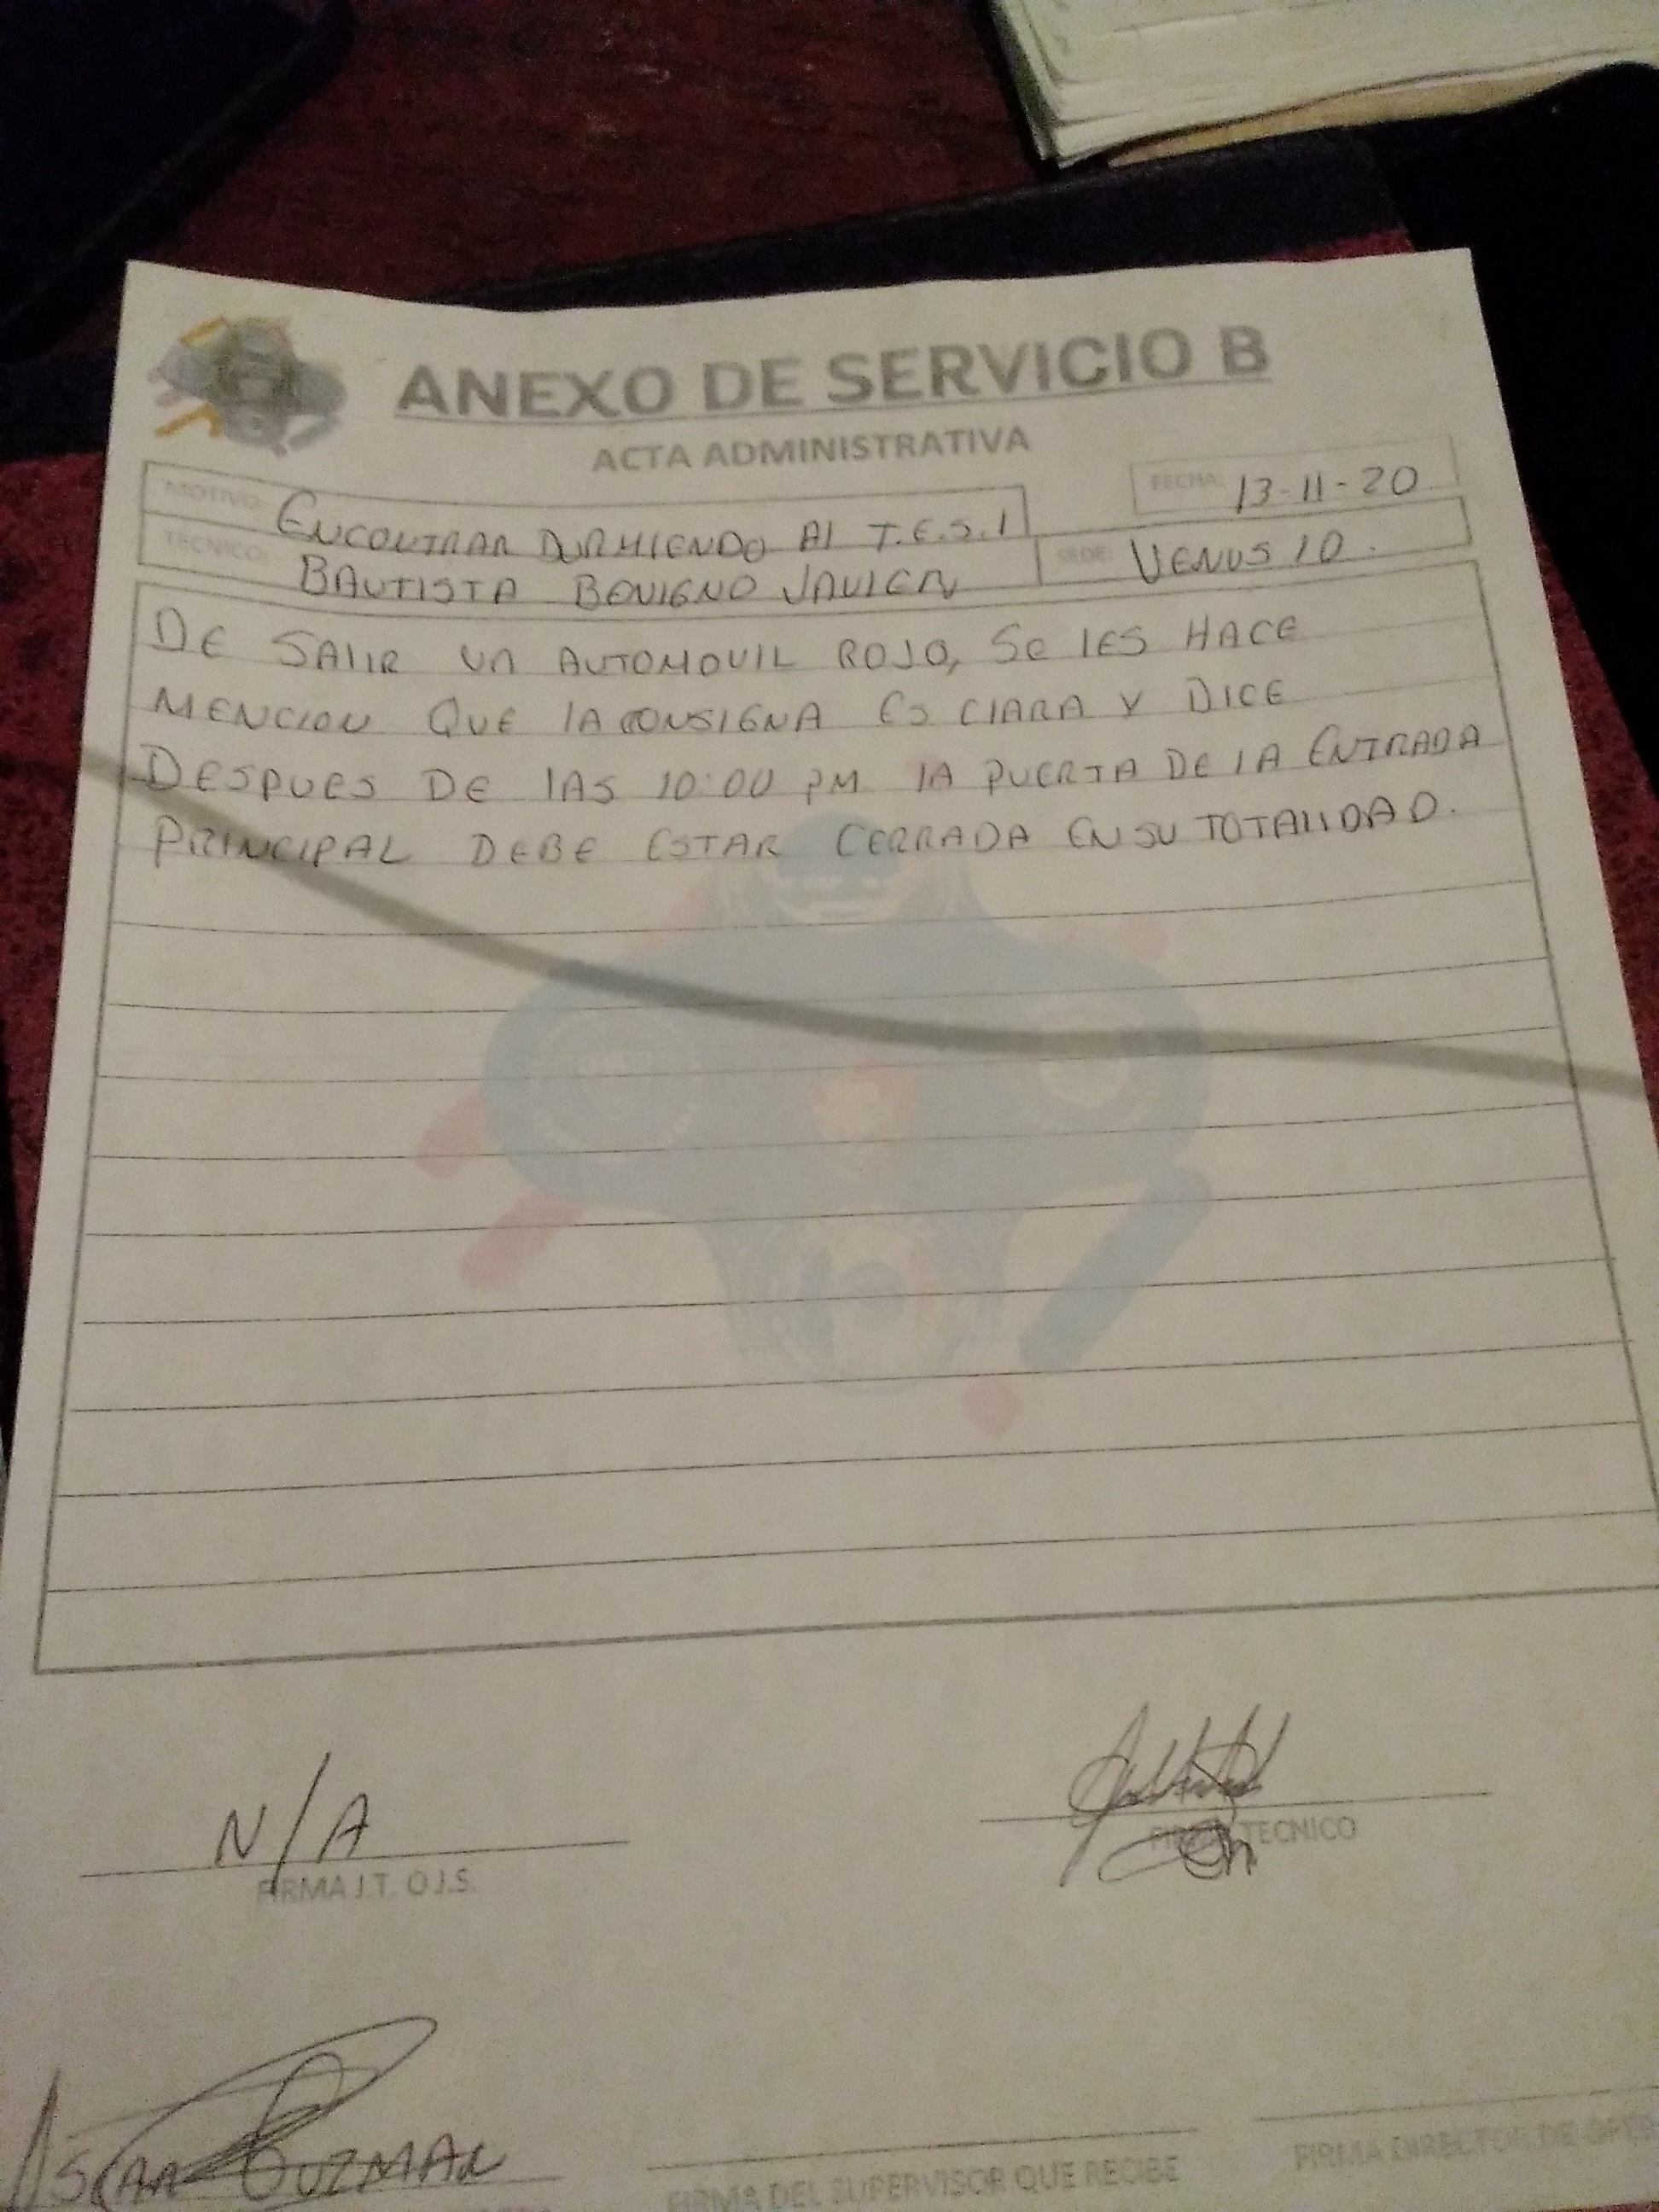 ANEXO DE SERVICIO B
ACTA ADMINISTRATIVA
FECHA: 13-11-20
MOTIVO: ENCONTRAR DURMIENDO Al T.E.S.I
TECNICO: BAUTISTA BENIGNO JAVIER
SEDE: VENUS 10.
DE SAlIR UN AUTOMOVIL ROJO, Se lES HACE
MENCION QUE lA CONSIGNA ES ClARA Y DICE
DESPUES DE lAS 10:00 PM lA PUERTA DE lA ENTRADA
PRINCIPAL DEBE ESTAR CERRADA EN SU TOTAlIDAD.
N/A
FIRMA J.T. O J.S.
FIRMA TECNICO
OSCAR GUZMAN
FIRMA DEL SUPERVISOR QUE RECIBE
FIRMA DIRECTOR DE